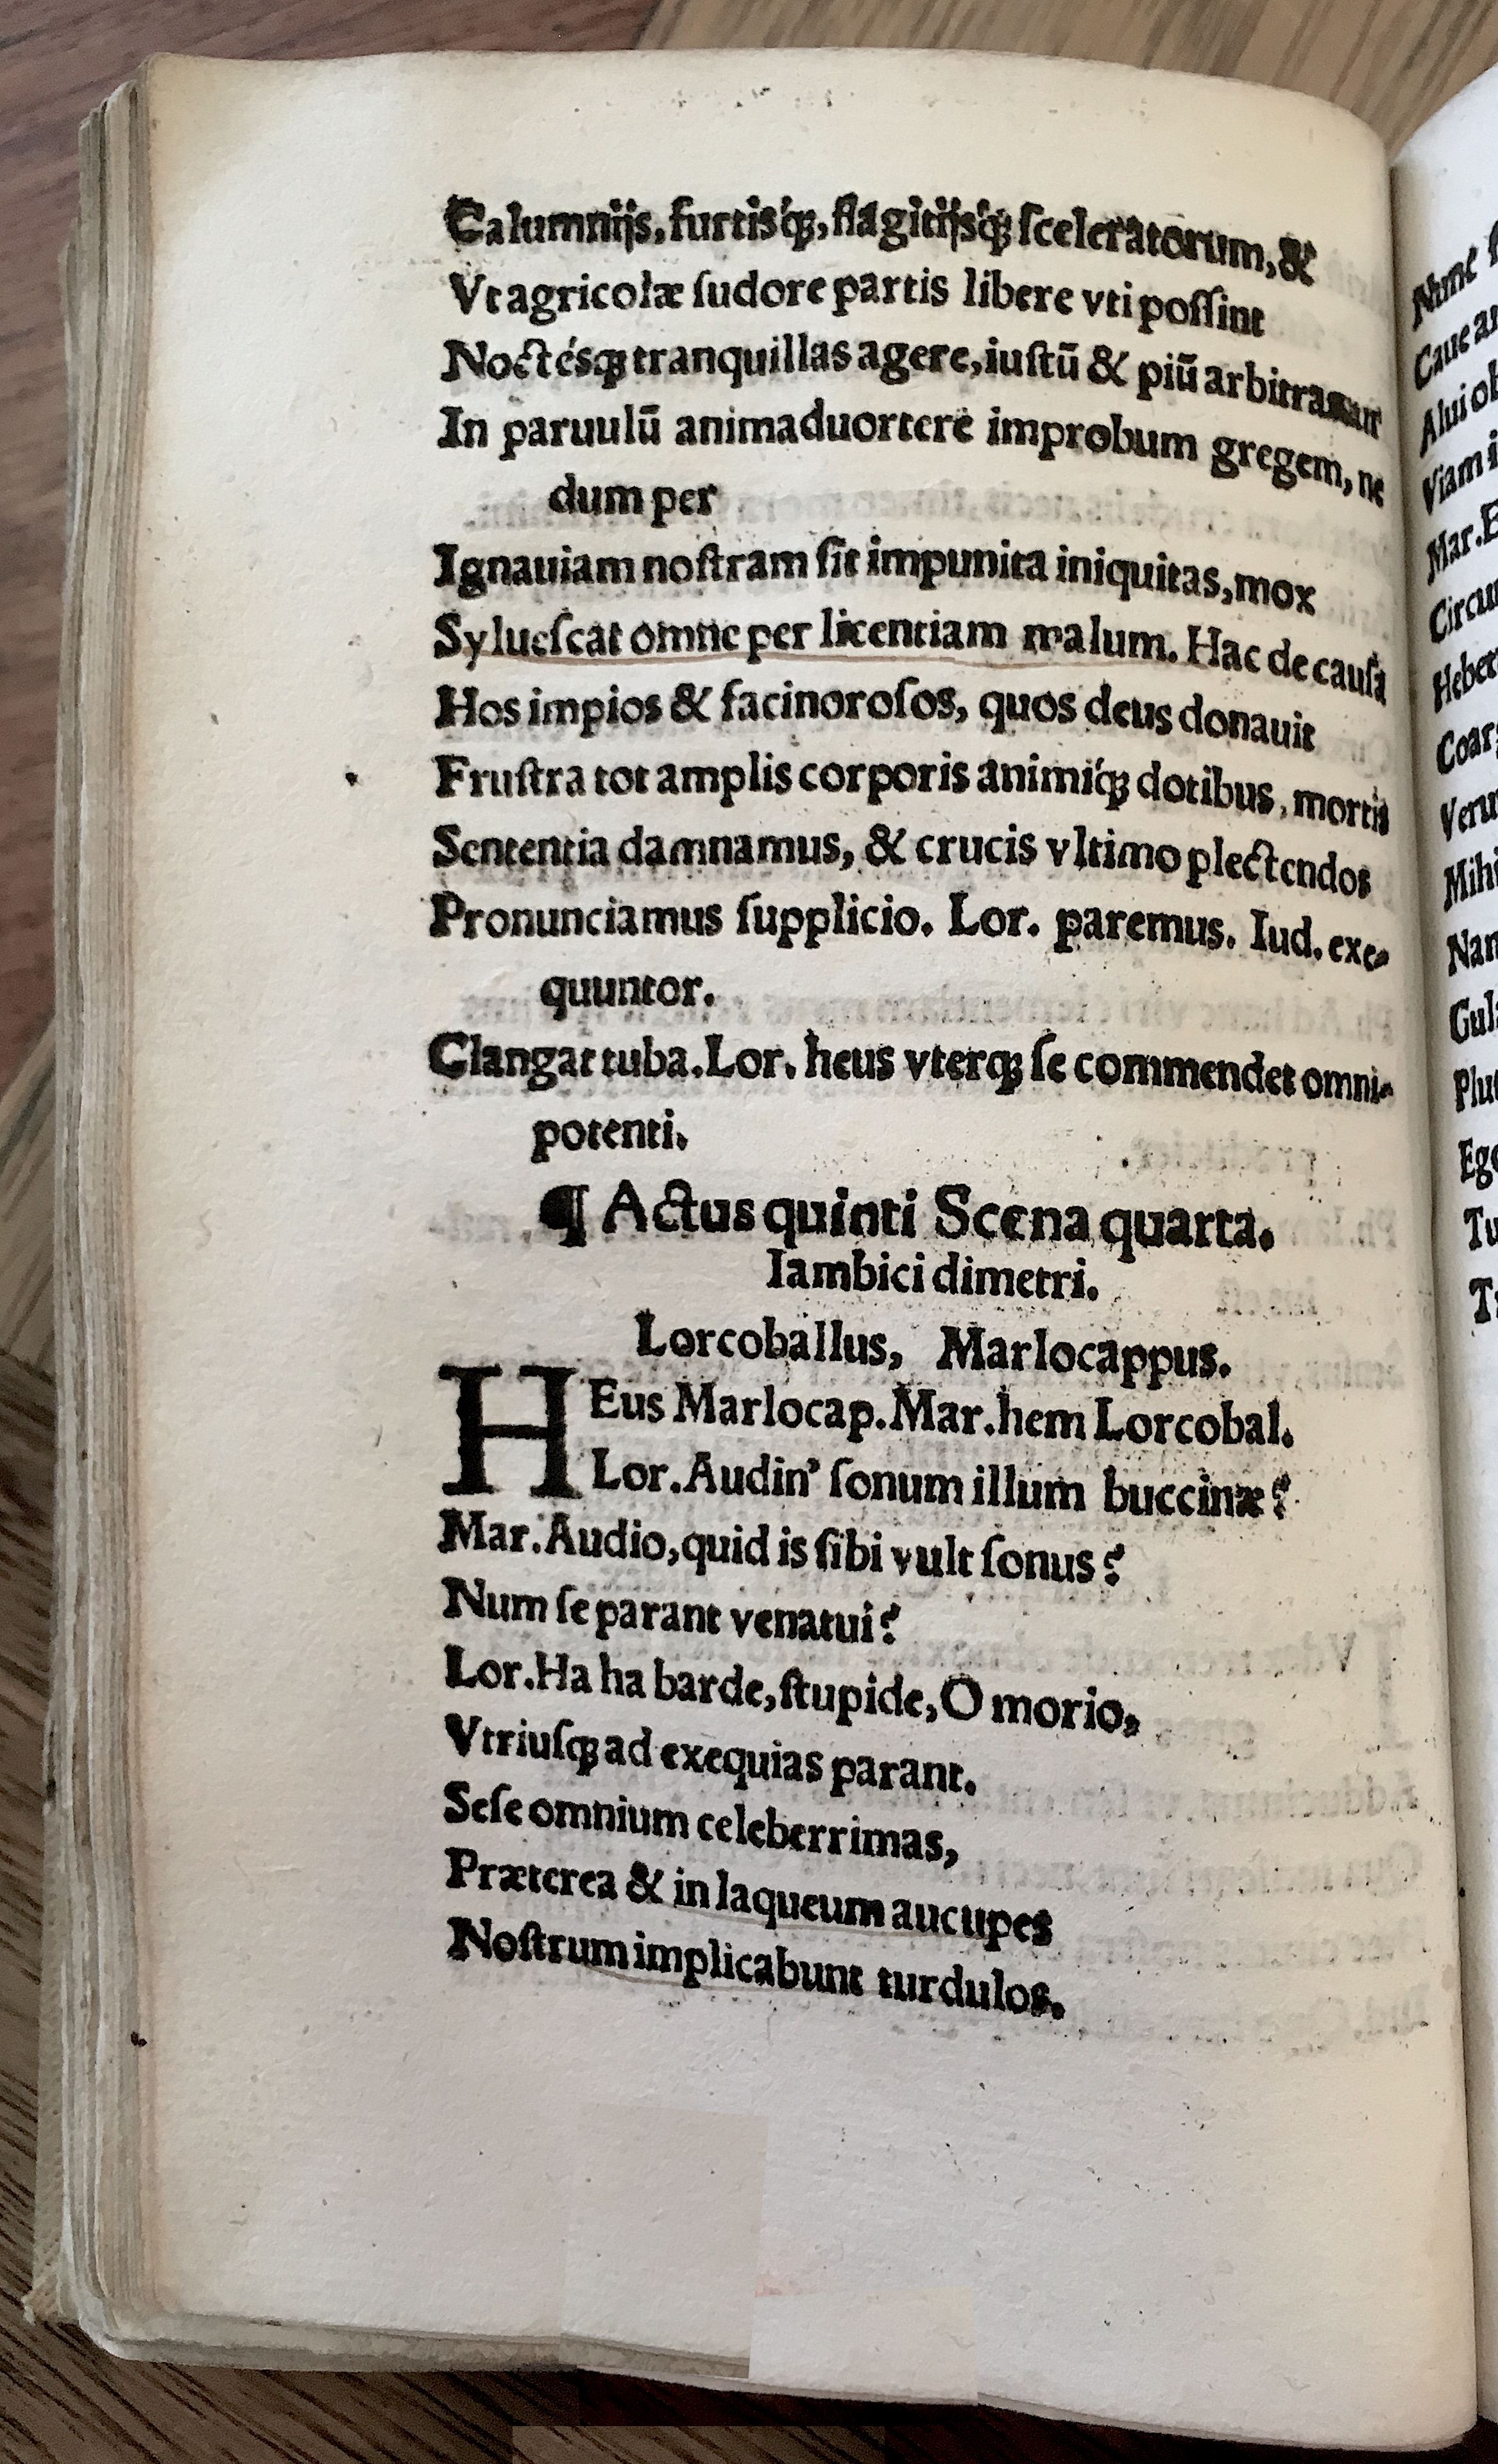 Calumnijs, furtisq́ꝫ, flagitijsq́ꝫ ſceleratorum, &
Vt agricolæ ſudore partis libere vti poſſint
Noctésqꝫ tranquillas agere, iuſtū & piū arbitramur
In paruulū animaduortere improbum gregem, ne
dum per
Ignauiam noſtram ſit impunita iniquitas, mox
Sylueſcat omne per licentiam malum. Hac de cauſa
Hos impios & facinoroſos, quos deus donauit
Fruſtra tot amplis corporis animiq́ꝫ dotibus, mortis
Sententia damnamus, & crucis vltimo plectendos
Pronunciamus ſupplicio. Lor. paremus. Iud. exe-
quuntor.
Clangat tuba. Lor. heus vterqꝫ ſe commendet omni-
potenti.
¶ Actus quinti Scena quarta.
Iambici dimetri.
Lorcoballus, Marlocappus.
HEus Marlocap. Mar. hem Lorcobal.
Lor. Audin' ſonum illum buccinæ?
Mar. Audio, quid is ſibi vult ſonus?
Num ſe parant venatui?
Lor. Ha ha barde, ſtupide, O morio,
Vtriuſqꝫ ad exequias parant.
Seſe omnium celeberrimas,
Præterea & in laqueum aucupes
Noſtrum implicabunt turdulos.
Nunc
Caue
Alui
Viam
Mar.
Mihi